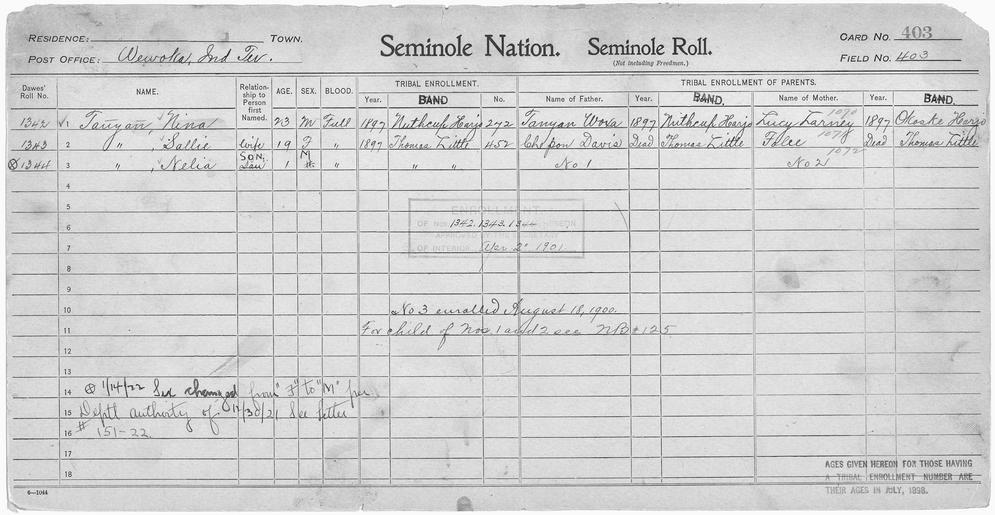 RESIDENCE: TOWN.
POST OFFICE: Wewoka, Ind Ter.
Seminole Nation. Seminole Roll.
(Not including Freedmen.)
CARD NO. 403
FIELD NO. 403
Dawes' Roll No. NAME. Relationship to Person first Named. AGE. SEX. BLOOD. TRIBAL ENROLLMENT. TRIBAL ENROLLMENT OF PARENTS.
Year. BAND No. Name of Father. Year. BAND. Name of Mother. Year. BAND.
1342 1 Tanyan, Nina 23 M Full 1897 Nuthcup Harjo 272 Tanyan Wova 1897 Nuthcup Harjo Lucy Larney 1070 1897 Otoske Harjo
1343 2 " , Sallie wife 19 F " 1897 Thomas Little 452 Chepon Davis Dead Thomas Little Folee 1071 Dead Thomas Little
1344 3 " , Nelia SON, Dau 1 M F. " " " No 1 No 2 1072
4
5
ENROLLMENT
6 OF NOS. 1342.1343.1344 HEREON
APPROVED BY THE SECRETARY
7 OF INTERIOR Apr 2" 1901
8
9
10 No 3 enrolled August 18, 1900.
11 For child of Nos. 1 and 2 see NB #125
12
13
14 1/14/22 Sex changed from "F" to "M" per
15 Deptl authority of 12/30/21 See Letter
16 # 151-22.
17
18
AGES GIVEN HEREON FOR THOSE HAVING
A TRIBAL ENROLLMENT NUMBER ARE
THEIR AGES IN JULY, 1898.
6-1044